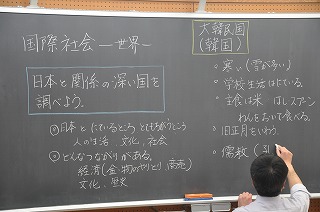 国際社会 ―世界―
日本と関係の深い国を
調べよう。
日本と にているところ
人の生活 文化、社会
どんなつながりがある。
経済(金・物のやりとり、
文化、歴史
大韓民国
(韓国)
寒い(雪が多い)
学校生活はにている。
主食は米 はしスプーン
わんをおいて食べる。
旧正月をいわう。
儒教(